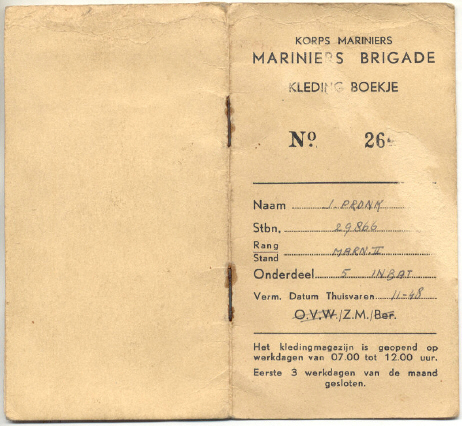 KORPS MARINIERS
MARINIERS BRIGADE
KLEDING BOEKJE
No. 26
Naam J. PRONK
Stbn. 29866
Rang
Stand MARN. II
Onderdeel 5 INBAT
Verm. Datum Thuisvaren 11-48
O.V.W./Z.M./Ber.
Het kledingmagezijn is geopend op
werkdagen van 07.00 tot 12.00 uur.
Eerste 3 werkdagen van de maand
gesloten.